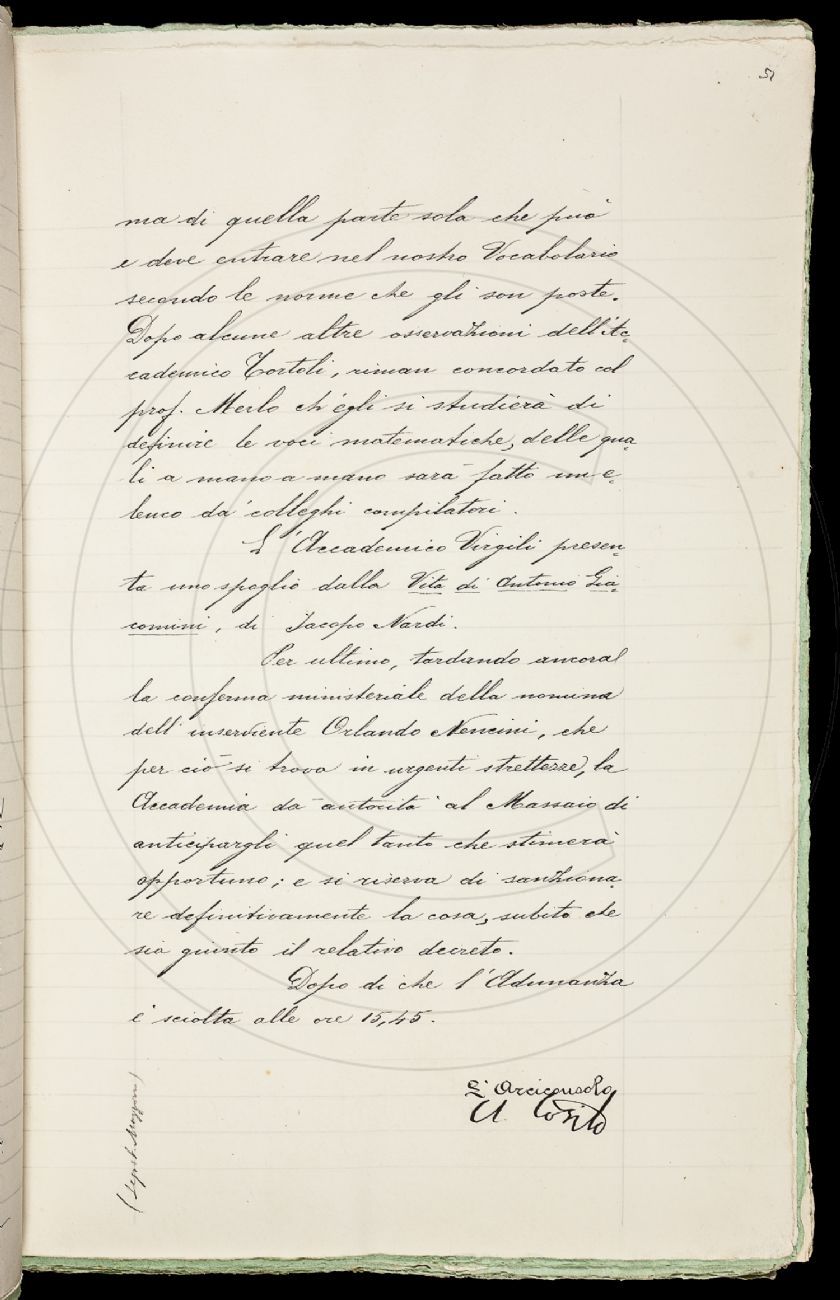 51
ma di quella parte sola che può
e deve entrare nel nostro Vocabolario
secondo le norme che gli son poste.
Dopo alcune altre osservazioni dell'Ac-
cademico Tortoli, riman concordato col
prof. Merlo ch'egli si studierà di
definire le voci matematiche, delle qua-
li a mano a mano sarà fatto un e-
lenco da' colleghi compilatori.
L'Accademico Virgili presen-
ta uno spoglio dalla Vita di Antonio Gia-
comini, di Jacopo Nardi.
Per ultimo, tardando ancora
la conferma ministeriale della nomina
dell'inserviente Orlando Nencini, che
per ciò si trova in urgenti strettezze, la
Accademia dà autorità al Massaio di
anticipargli quel tanto che stimerà
opportuno; e si riserva di sanziona-
re definitivamente la cosa, subito che
sia giunto il relativo decreto.
Dopo di che l'Adunanza
è sciolta alle ore 15,45.
L'Arciconsolo
A. Conti